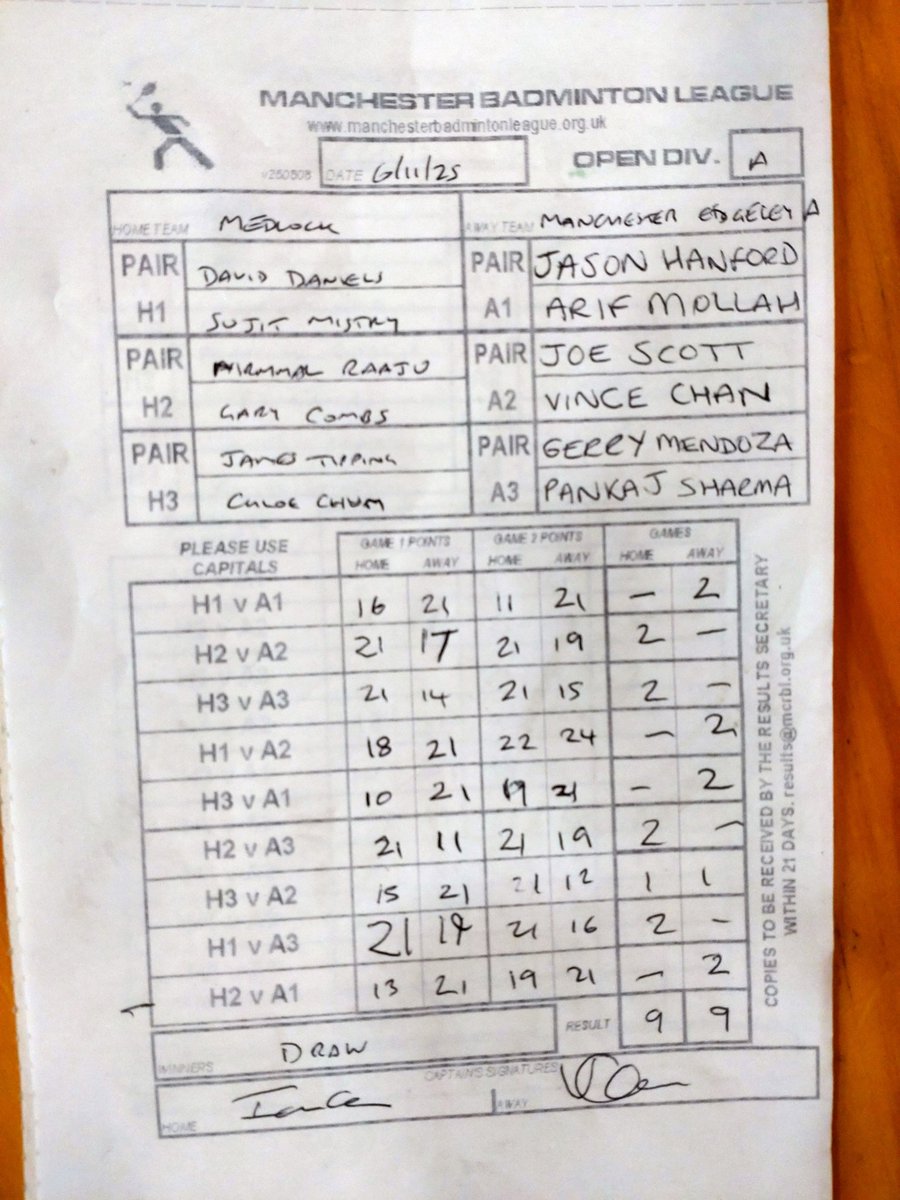 MANCHESTER BADMINTON LEAGUE
www.manchesterbadmintonleague.org.uk
v250508 DATE 6/11/25 OPEN DIV. A
HOME TEAM MEDLOCK AWAY TEAM MANCHESTER EDGELEY A
PAIR DAVID DANIELS PAIR JASON HANFORD
H1 SUJIT MISTRY A1 ARIF MOLLAH
PAIR NIRMMAL RAAJU PAIR JOE SCOTT
H2 GARY COMBS A2 VINCE CHAN
PAIR JAMES TIPPING PAIR GERRY MENDOZA
H3 CHLOE CHUM A3 PANKAJ SHARMA
PLEASE USE CAPITALS GAME 1 POINTS GAME 2 POINTS GAMES
HOME AWAY HOME AWAY HOME AWAY
H1 v A1 16 21 11 21 - 2
H2 v A2 21 17 21 19 2 -
H3 v A3 21 14 21 15 2 -
H1 v A2 18 21 22 24 - 2
H3 v A1 10 21 19 21 - 2
H2 v A3 21 11 21 19 2 -
H3 v A2 15 21 21 12 1 1
H1 v A3 21 21 16 2 -
H2 v A1 13 21 19 21 - 2
WINNERS DRAW RESULT 9 9
CAPTAIN'S SIGNATURES
HOME AWAY
COPIES TO BE RECEIVED BY THE RESULTS SECRETARY
WITHIN 21 DAYS. results@mcrbl.org.uk